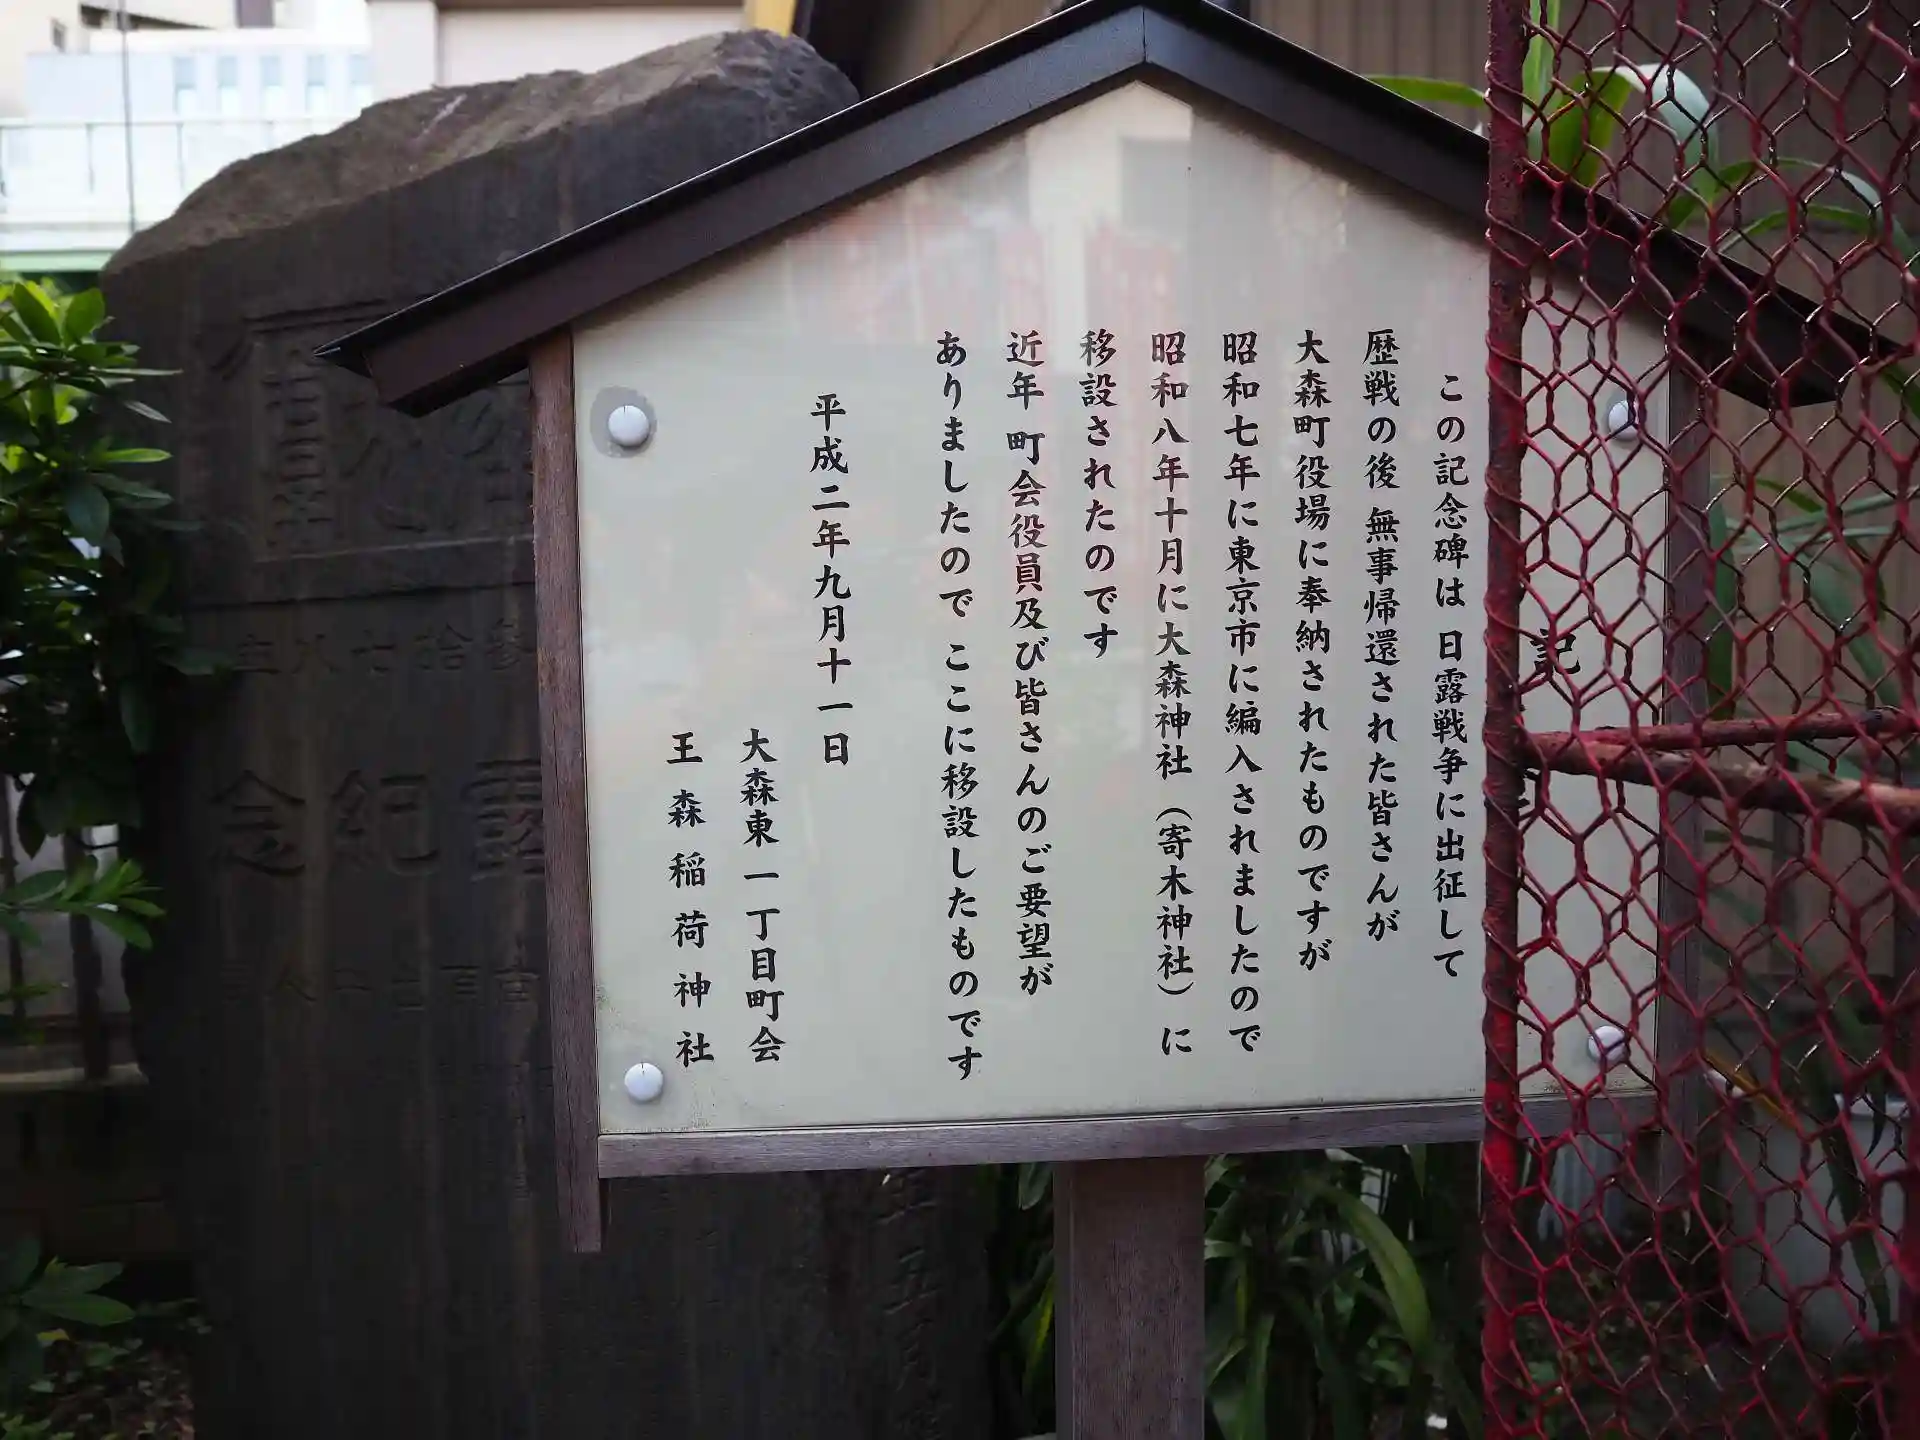 記
この記念碑は 日露戦争に出征して
歴戦の後 無事帰還された皆さんが
大森町役場に奉納されたものですが
昭和七年に東京市に編入されましたので
昭和八年十月に大森神社（寄木神社）に
移設されたのです
近年 町会役員及び皆さんのご要望が
ありましたので ここに移設したものです
平成二年九月十一日
大森東一丁目町会
王森稲荷神社
紀念
五月